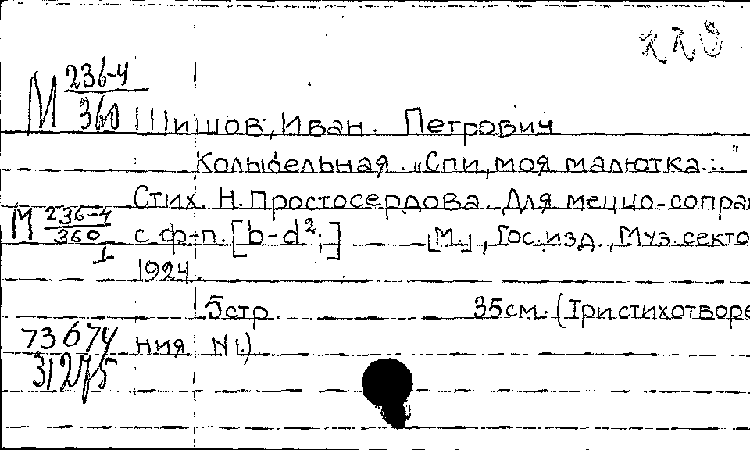 М 236-4
360
Шишов, Иван. Петрович
Колыбельная. "Спи, моя малютка..."
Стих. Н. Простосердова. Для меццо-сопра
М 236-4
360
с ф-п. [b-d².] [М.], Гос. изд., Муз. секто
1924.
5стр. 35см. (Три стихотворе
73674
ния N1.)
31275